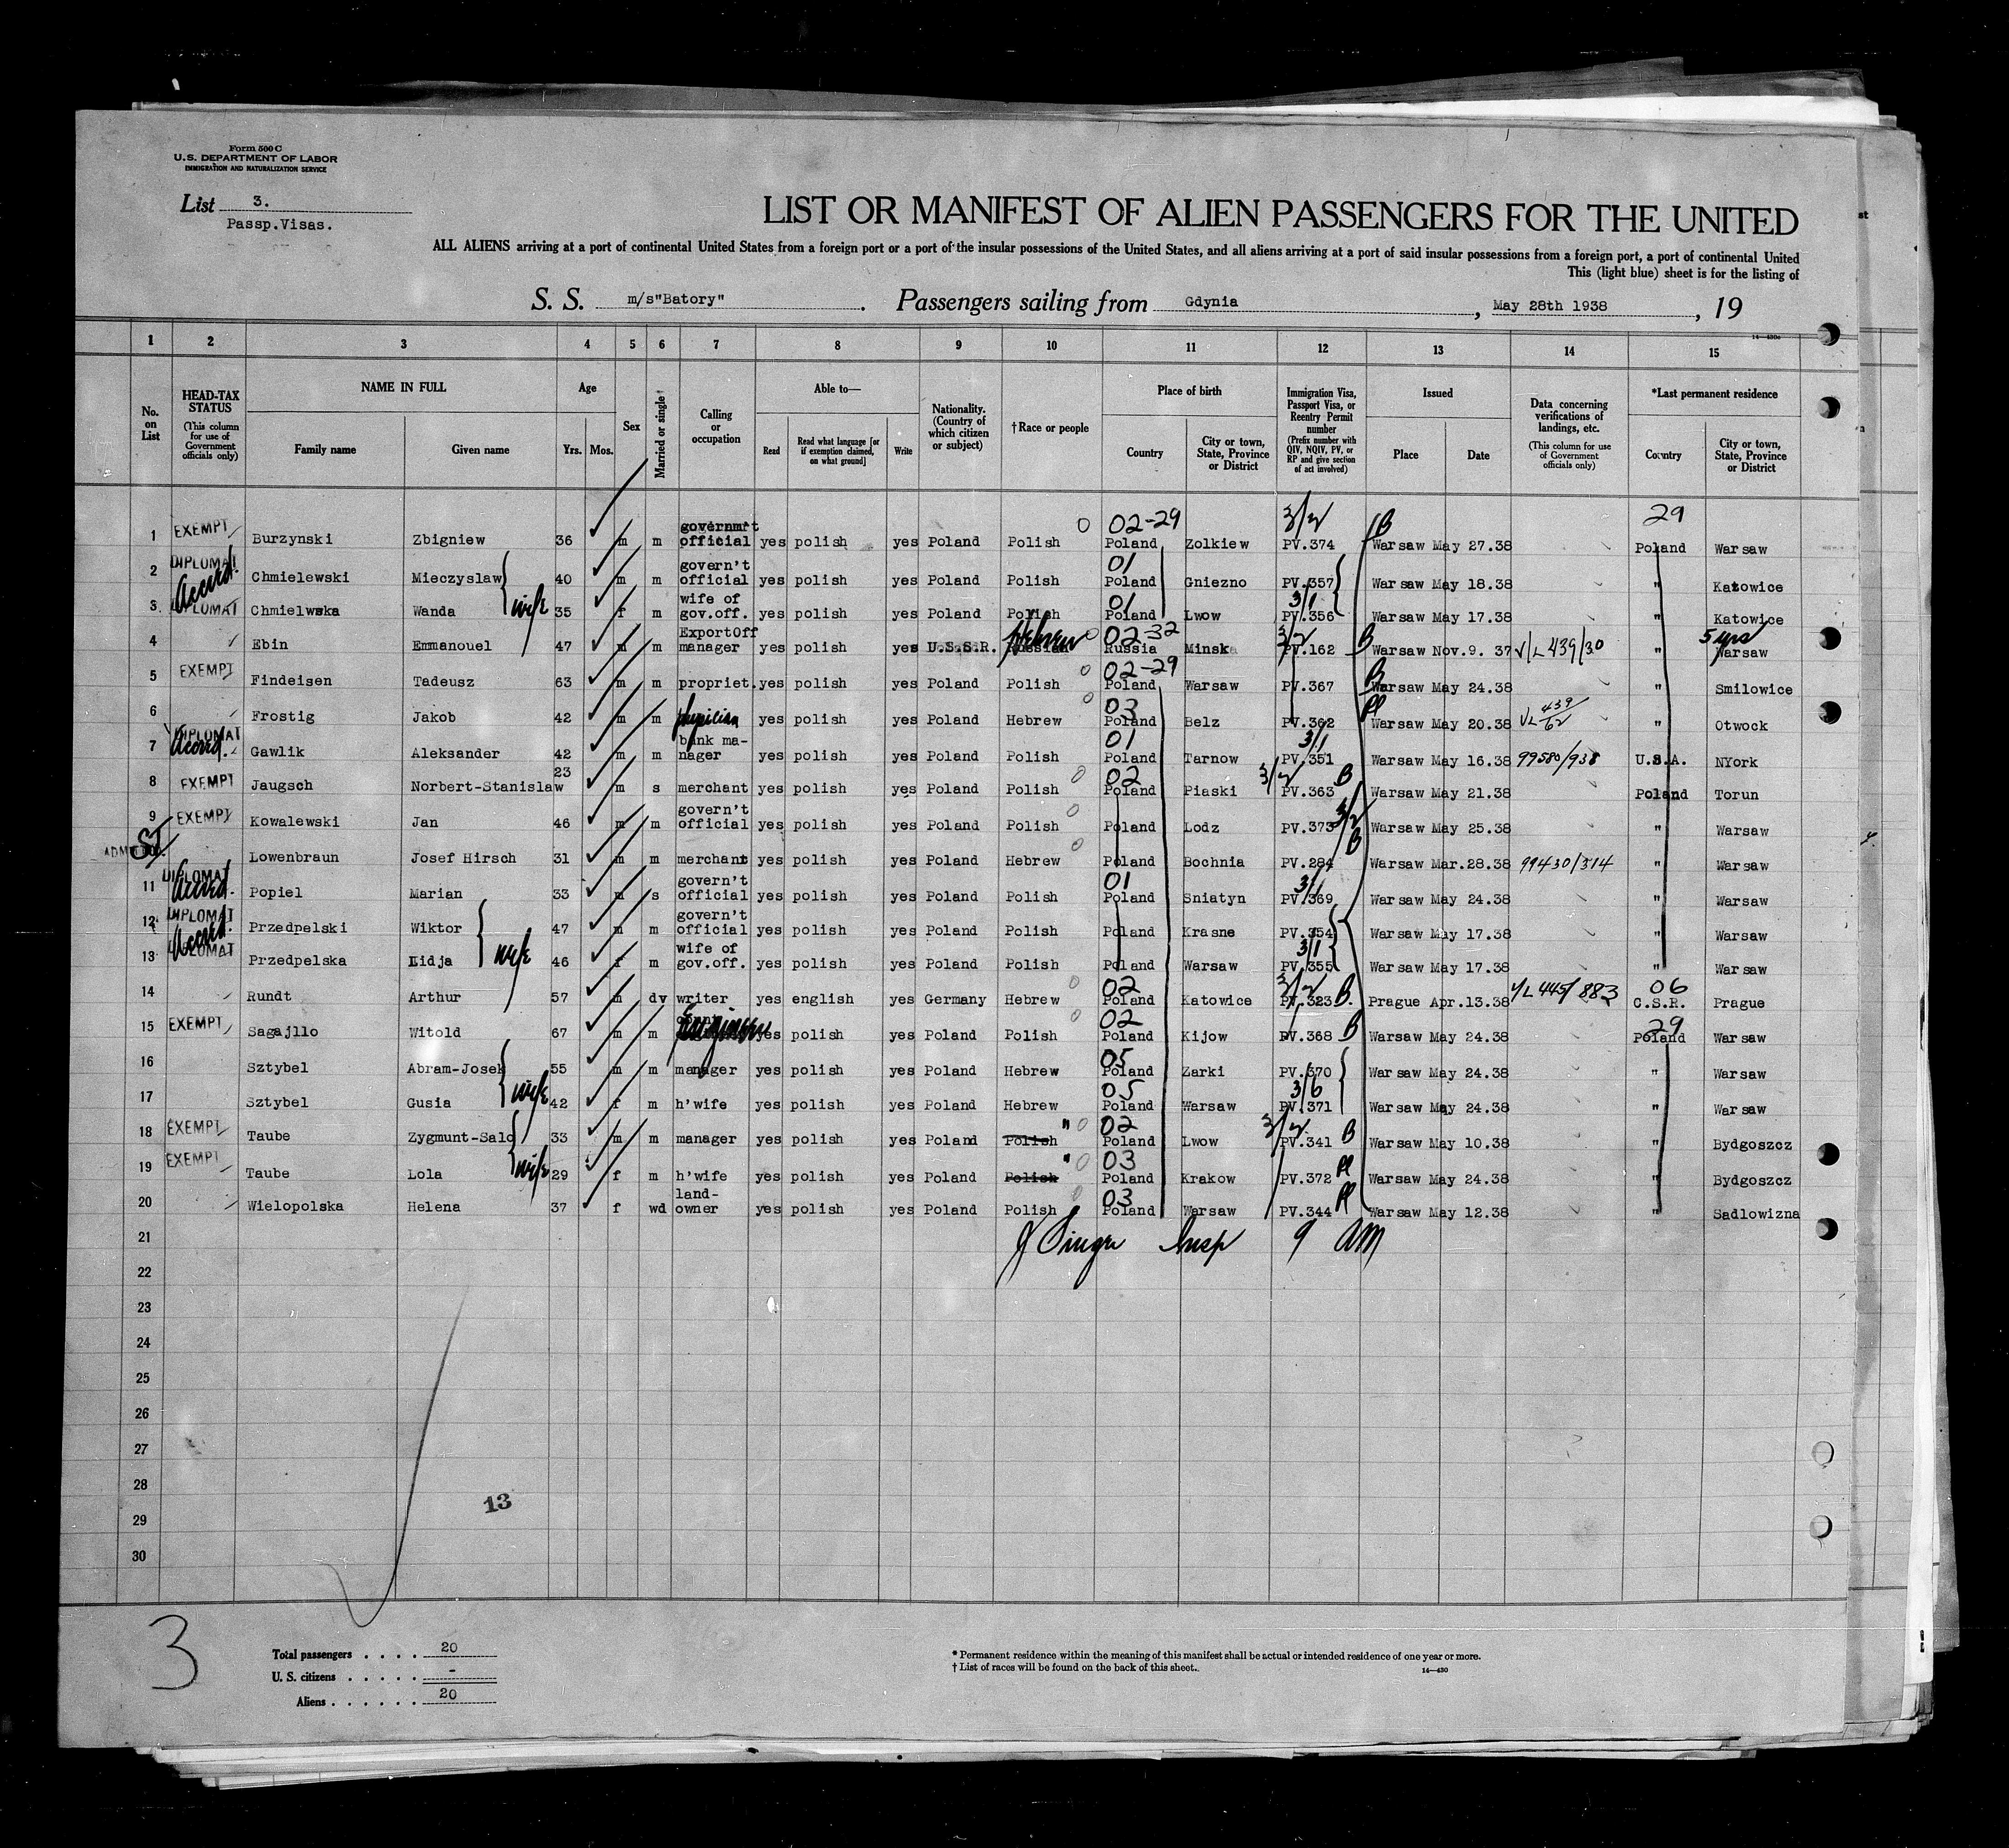 Form 500 C
U.S. DEPARTMENT OF LABOR
IMMIGRATION AND NATURALIZATION SERVICE
List 3.
Passp.Visas.
LIST OR MANIFEST OF ALIEN PASSENGERS FOR THE UNITED
ALL ALIENS arriving at a port of continental United States from a foreign port or a port of the insular possessions of the United States, and all aliens arriving at a port of said insular possessions from a foreign port, a port of continental United
This (light blue) sheet is for the listing of
S. S. m/s"Batory". Passengers sailing from Gdynia, May 28th 1938, 19
14—430c
1 2 3 4 5 6 7 8 9 10 11 12 13 14 15
No. on List
HEAD-TAX STATUS (This column for use of Government officials only)
NAME IN FULL
Family name
Given name
Age
Yrs. Mos.
Sex
Married or single
Calling or occupation
Able to—
Read
Read what language [or if exemption claimed, on what ground]
Write
Nationality. (Country of which citizen or subject)
†Race or people
Place of birth
Country
City or town, State, Province or District
Immigration Visa, Passport Visa, or Reentry Permit number (Prefix number with QIV, NQIV, PV, or RP and give section of act involved)
Issued
Place
Date
Data concerning verifications of landings, etc. (This column for use of Government officials only)
*Last permanent residence
Country
City or town, State, Province or District
02-29 3/2 B 29
1 EXEMPT Burzynski Zbigniew 36 m m governm't official yes polish yes Poland Polish Poland Zolkiew PV.374 Warsaw May 27.38 Poland Warsaw
2 DIPLOMAT Accred. Chmielewski Mieczyslaw 40 m m govern't official yes polish yes Poland Polish 01 Poland Gniezno PV.357 Warsaw May 18.38 " Katowice
3 DIPLOMAT Chmielwska Wanda wife 35 f m wife of gov.off. yes polish yes Poland Polish 01 Poland Lwow 3/1 PV.356 Warsaw May 17.38 " Katowice
4 Ebin Emmanouel 47 m m ExportOff manager yes polish yes U.S.S.R. Hebrew Russian 02-32 Russia Minsk 3/2 PV.162 B Warsaw Nov.9. 37 V/L 439/30 " 5 yrs Warsaw
5 EXEMPT Findeisen Tadeusz 63 m m propriet. yes polish yes Poland Polish 02-29 Poland Warsaw PV.367 B Warsaw May 24.38 " Smilowice
6 Frostig Jakob 42 m m physician yes polish yes Poland Hebrew 03 Poland Belz PV.362 Pl Warsaw May 20.38 VL 439/62 " Otwock
7 DIPLOMAT Accred. Gawlik Aleksander 42 m m bank manager yes polish yes Poland Polish 01 Poland Tarnow 3/1 PV.351 Warsaw May 16.38 99580/938 U.S.A. NYork
8 EXEMPT Jaugsch Norbert-Stanislaw 23 m s merchant yes polish yes Poland Polish 02 Poland Piaski 3/2 PV.363 B Warsaw May 21.38 Poland Torun
9 EXEMPT Kowalewski Jan 46 m m govern't official yes polish yes Poland Polish Poland Lodz PV.373 3/2 Warsaw May 25.38 " Warsaw
Lowenbraun Josef Hirsch 31 m m merchant yes polish yes Poland Hebrew Poland Bochnia PV.284 B Warsaw Mar.28.38 99430/314 " Warsaw
11 DIPLOMAT Accred. Popiel Marian 33 m s govern't official yes polish yes Poland Polish 01 Poland Sniatyn 3/1 PV.369 Warsaw May 24.38 " Warsaw
12 DIPLOMAT Accred. Przedpelski Wiktor 47 m m govern't official yes polish yes Poland Polish Poland Krasne PV.354 Warsaw May 17.38 " Warsaw
13 DIPLOMAT Przedpelska Lidja wife 46 f m wife of gov.off. yes polish yes Poland Polish Poland Warsaw 3/1 PV.355 Warsaw May 17.38 " Warsaw
14 Rundt Arthur 57 m dv writer yes english yes Germany Hebrew 02 Poland Katowice 3/2 PV.323 B. Prague Apr.13.38 V/L 445/883 06 C.S.R. Prague
15 EXEMPT Sagajllo Witold 67 m m Engineer yes polish yes Poland Polish 02 Poland Kijow PV.368 B Warsaw May 24.38 29 Poland Warsaw
16 Sztybel Abram-Josek 55 m m manager yes polish yes Poland Hebrew 05 Poland Zarki PV.370 Warsaw May 24.38 " Warsaw
17 Sztybel Gusia wife 42 f m h'wife yes polish yes Poland Hebrew 05 Poland Warsaw 3/6 PV.371 Warsaw May 24.38 " Warsaw
18 EXEMPT Taube Zygmunt-Salo 33 m m manager yes polish yes Poland Polish " 02 Poland Lwow 3/2 PV.341 B Warsaw May 10.38 " Bydgoszcz
19 EXEMPT Taube Lola wife 29 f m h'wife yes polish yes Poland Polish " 03 Poland Krakow PV.372 Pl Warsaw May 24.38 " Bydgoszcz
20 Wielopolska Helena 37 f wd land-owner yes polish yes Poland Polish 03 Poland Warsaw PV.344 Pl Warsaw May 12.38 " Sadlowizna
21 J Singer Insp 9 AM
22
23
24
25
26
27
28
29
30
13
3
Total passengers . . . . 20
U. S. citizens . . . . . -
Aliens . . . . . . 20
* Permanent residence within the meaning of this manifest shall be actual or intended residence of one year or more.
† List of races will be found on the back of this sheet.
14—430